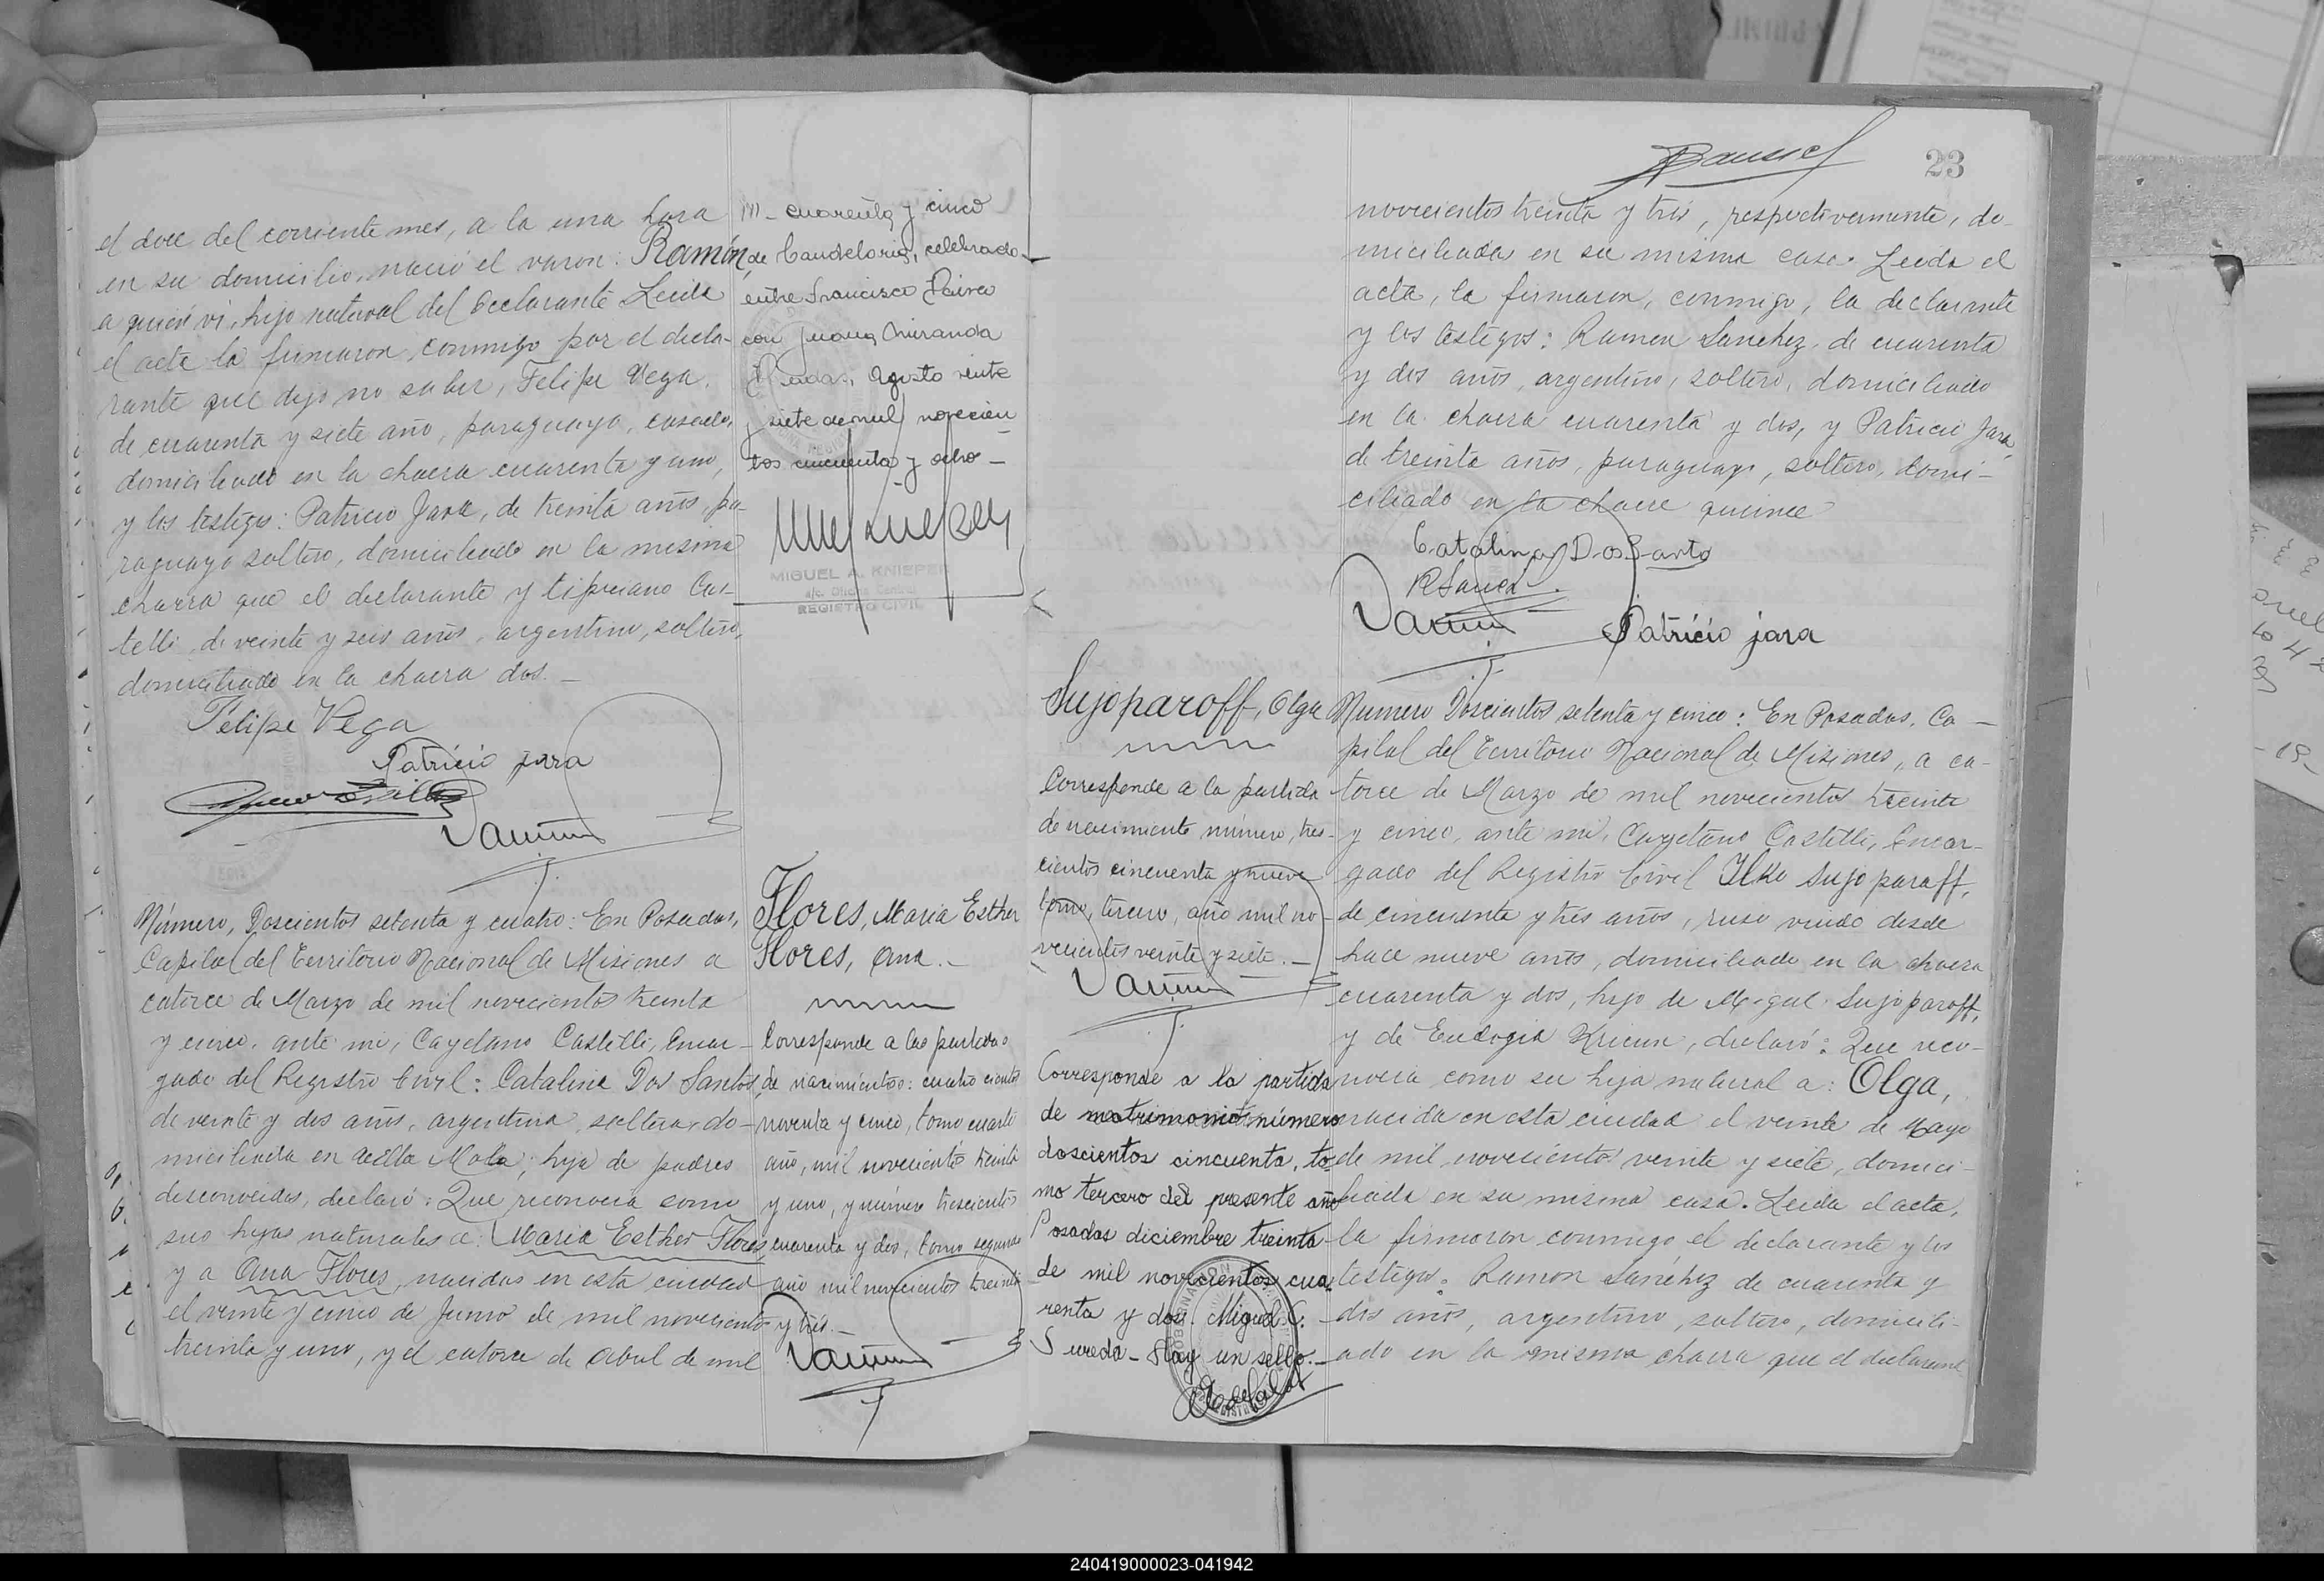 el doce del corriente mes, a la una hora
en su domicilio, nació el varon: Ramón,
a quien vi, hijo natural del declarante Leida
el acta la firmaron conmigo por el decla-
rante que dijo no saber, Felipe Vega,
de cuarenta y siete año, paraguayo, casado,
domiciliado en la chacra cuarenta y uno,
y los testigos: Patricio Jara, de treinta años, pa-
raguayo soltero, domiciliado en la misma
chacra que el declarante y Cipriano Cas-
telli, de veinte y seis años, argentino, soltero,
domiciliado en la chacra dos.—
Felipe Vega
Patricio jara
cuarenta y cinco
de Candelaria, celebrado
entre Francisco Paiva
con Juana Miranda
Posadas, Agosto veinte
y siete de mil novecien
tos cincuenta y ocho—
MIGUEL A. KNIEPER
a/c. Oficina Central
REGISTRO CIVIL
Número, Doscientos setenta y cuatro: En Posadas,
Capital del Territorio Nacional de Misiones a
catorce de Marzo de mil novecientos treinta
y cinco, ante mi, Cayetano Castelli, Encar-
gado del Registro Civil: Catalina Dos Santos,
de veinte y dos años, argentina, soltera, do-
miciliada en Villa Mola, hija de padres
desconocidos, declaró: Que reconocía como
sus hijas naturales a: Maria Esther Flores,
y a Ana Flores, nacidas en esta ciudad
el veinte y cinco de Junio de mil novecientos
treinta y uno, y el catorce de Abril de mil
Flores, Maria Esther
Flores, Ana.—
Corresponde a las partidas
de nacimientos: cuatro cientos
noventa y cinco, tomo cuarto
año, mil novecientos treinta
y uno, y número trescientos
cuarenta y dos, tomo segundo
año mil novecientos treinta
y tres.—
23
novecientos treinta y tres, respectivamente, do-
miciliadas en su misma casa. Leida el
acta, la firmaron, conmigo, la declarante
y los testigos: Ramon Sanchez, de cuarenta
y dos años, argentino, soltero, domiciliado
en la chacra cuarenta y dos, y Patricio Jara,
de treinta años, paraguayo, soltero, domi-
ciliado en la chacra quince
Catalina Dos Santo
Patricio jara
Sujoparoff, Olga
Corresponde a la partida
de nacimiento número, tres-
cientos cincuenta y nueve
tomo, tercero, año mil no-
vecientos veinte y siete.—
Corresponde a la partida
de matrimonio número
doscientos cincuenta, to-
mo tercero del presente año
Posadas diciembre treinta
de mil novecientos cua
renta y dos. Miguel C.
Sureda— Hay un sello.—
Numero Doscientos setenta y cinco: En Posadas, Ca—
pital del Territorio Nacional de Misiones, a ca-
torce de Marzo de mil novecientos treinta
y cinco, ante mi, Cayetano Castelli, Encar-
gado del Registro Civil Ilko Sujoparoff,
de cincuenta y tres años, ruso viudo desde
hace nueve años, domiciliado en la chacra
cuarenta y dos, hijo de Miguel Sujoparoff,
y de Eudogia Kricun, declaró: Que reco-
nocía como su hija natural a: Olga,
nacida en esta ciudad el veinte de Mayo
de mil novecientos veinte y siete, domici-
liada en su misma casa. Leida el acta,
la firmaron conmigo el declarante y los
testigos: Ramon Sanchez de cuarenta y
dos años, argentino, soltero, domicili-
ado en la misma chacra que el declarante
240419000023-041942